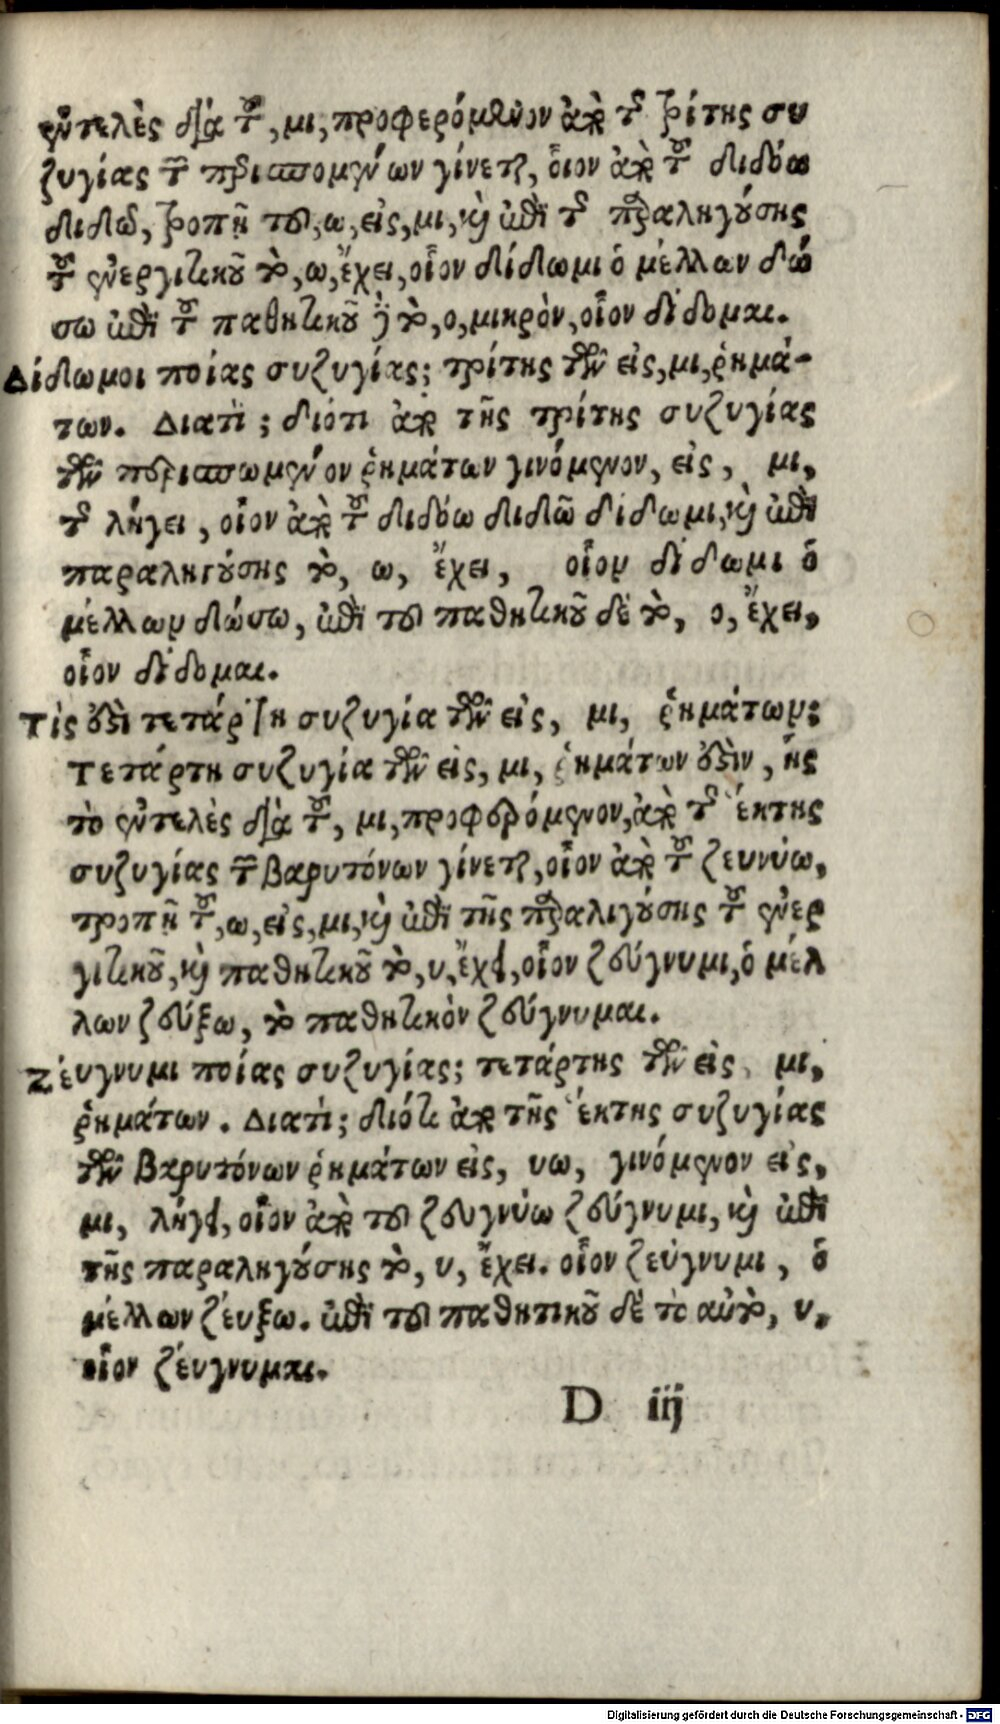 ἐντελὲς διὰ τοῦ, μι, προφερόμενον ἀπὸ τῆς τρίτης συ
ζυγίας τῶν περισπομένων γίνεται, οἷον ἀπὸ τοῦ διδόω
διδῶ, τροπῇ τοῦ, ω, εἰς, μι, καὶ ἐπὶ τῆς παραληγούσης
τοῦ ἐνεργιτικοῦ τὸ, ω, ἔχει, οἷον δίδωμι ὁ μέλλων δώ
σω ἐπὶ τοῦ παθητικοῦ δὲ τὸ, ο, μικρὸν, οἷον δίδομαι.
Δίδωμοι ποίας συζυγίας; τρίτης τῶν εἰς, μι, ῥημά-
των. Διατὶ; διότι ἀπὸ τῆς τρίτης συζυγίας
τῶν περισπωμένον ῥημάτων γινόμενον, εἰς, μι,
τὸ λήγει, οἷον ἀπὸ τοῦ διδόω διδῶ δίδωμι, καὶ ἐπὶ
παραληγούσης τὸ, ω, ἔχει, οἷον δίδωμι ὁ
μέλλων δώσω, ἐπὶ τοῦ παθητικοῦ δὲ τὸ, ο, ἔχει,
οἷον δίδομαι.
Τίς ἐστὶ τετάρτη συζυγία τῶν εἰς, μι, ῥημάτων;
Τετάρτη συζυγία τῶν εἰς, μι, ῥημάτων ἐστὶν, ἧς
τὸ ἐντελὲς διὰ τοῦ, μι, προφερόμενον, ἀπὸ τῆς ἕκτης
συζυγίας τῶν βαρυτόνων γίνεται, οἷον ἀπὸ τοῦ ζευνύω,
τροπῇ τοῦ, ω, εἰς, μι, καὶ ἐπὶ τῆς παραλιγούσης τοῦ ἐνερ
γιτικοῦ, καὶ παθητικοῦ τὸ, υ, ἔχει, οἷον ζεύγνυμι, ὁ μέλ
λων ζεύξω, τὸ παθητικὸν ζεύγνυμαι.
Ζεύγνυμι ποίας συζυγίας; τετάρτης τῶν εἰς, μι,
ῥημάτων. Διατὶ; διότι ἀπὸ τῆς ἕκτης συζυγίας
τῶν βαρυτόνων ῥημάτων εἰς, υω, γινόμενον εἰς,
μι, λήγει, οἷον ἀπὸ τοῦ ζευγνύω ζεύγνυμι, καὶ ἐπὶ
τῆς παραληγούσης τὸ, υ, ἔχει. οἷον ζεύγνυμι, ὁ
μέλλων ζέυξω. ἐπὶ τοῦ παθητικοῦ δὲ τὸ αὐτὸ, υ,
οἷον ζέυγνυμαι.
D iij
Digitalisierung gefördert durch die Deutsche Forschungsgemeinschaft - DFG